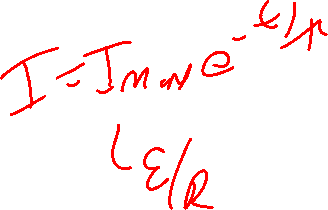 I = Imax e^-t/τ
↳ ε/R